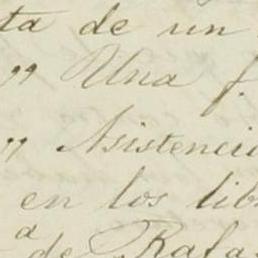 ta de un
" Una f.
" Asistenci
en los lib
a de Rafa